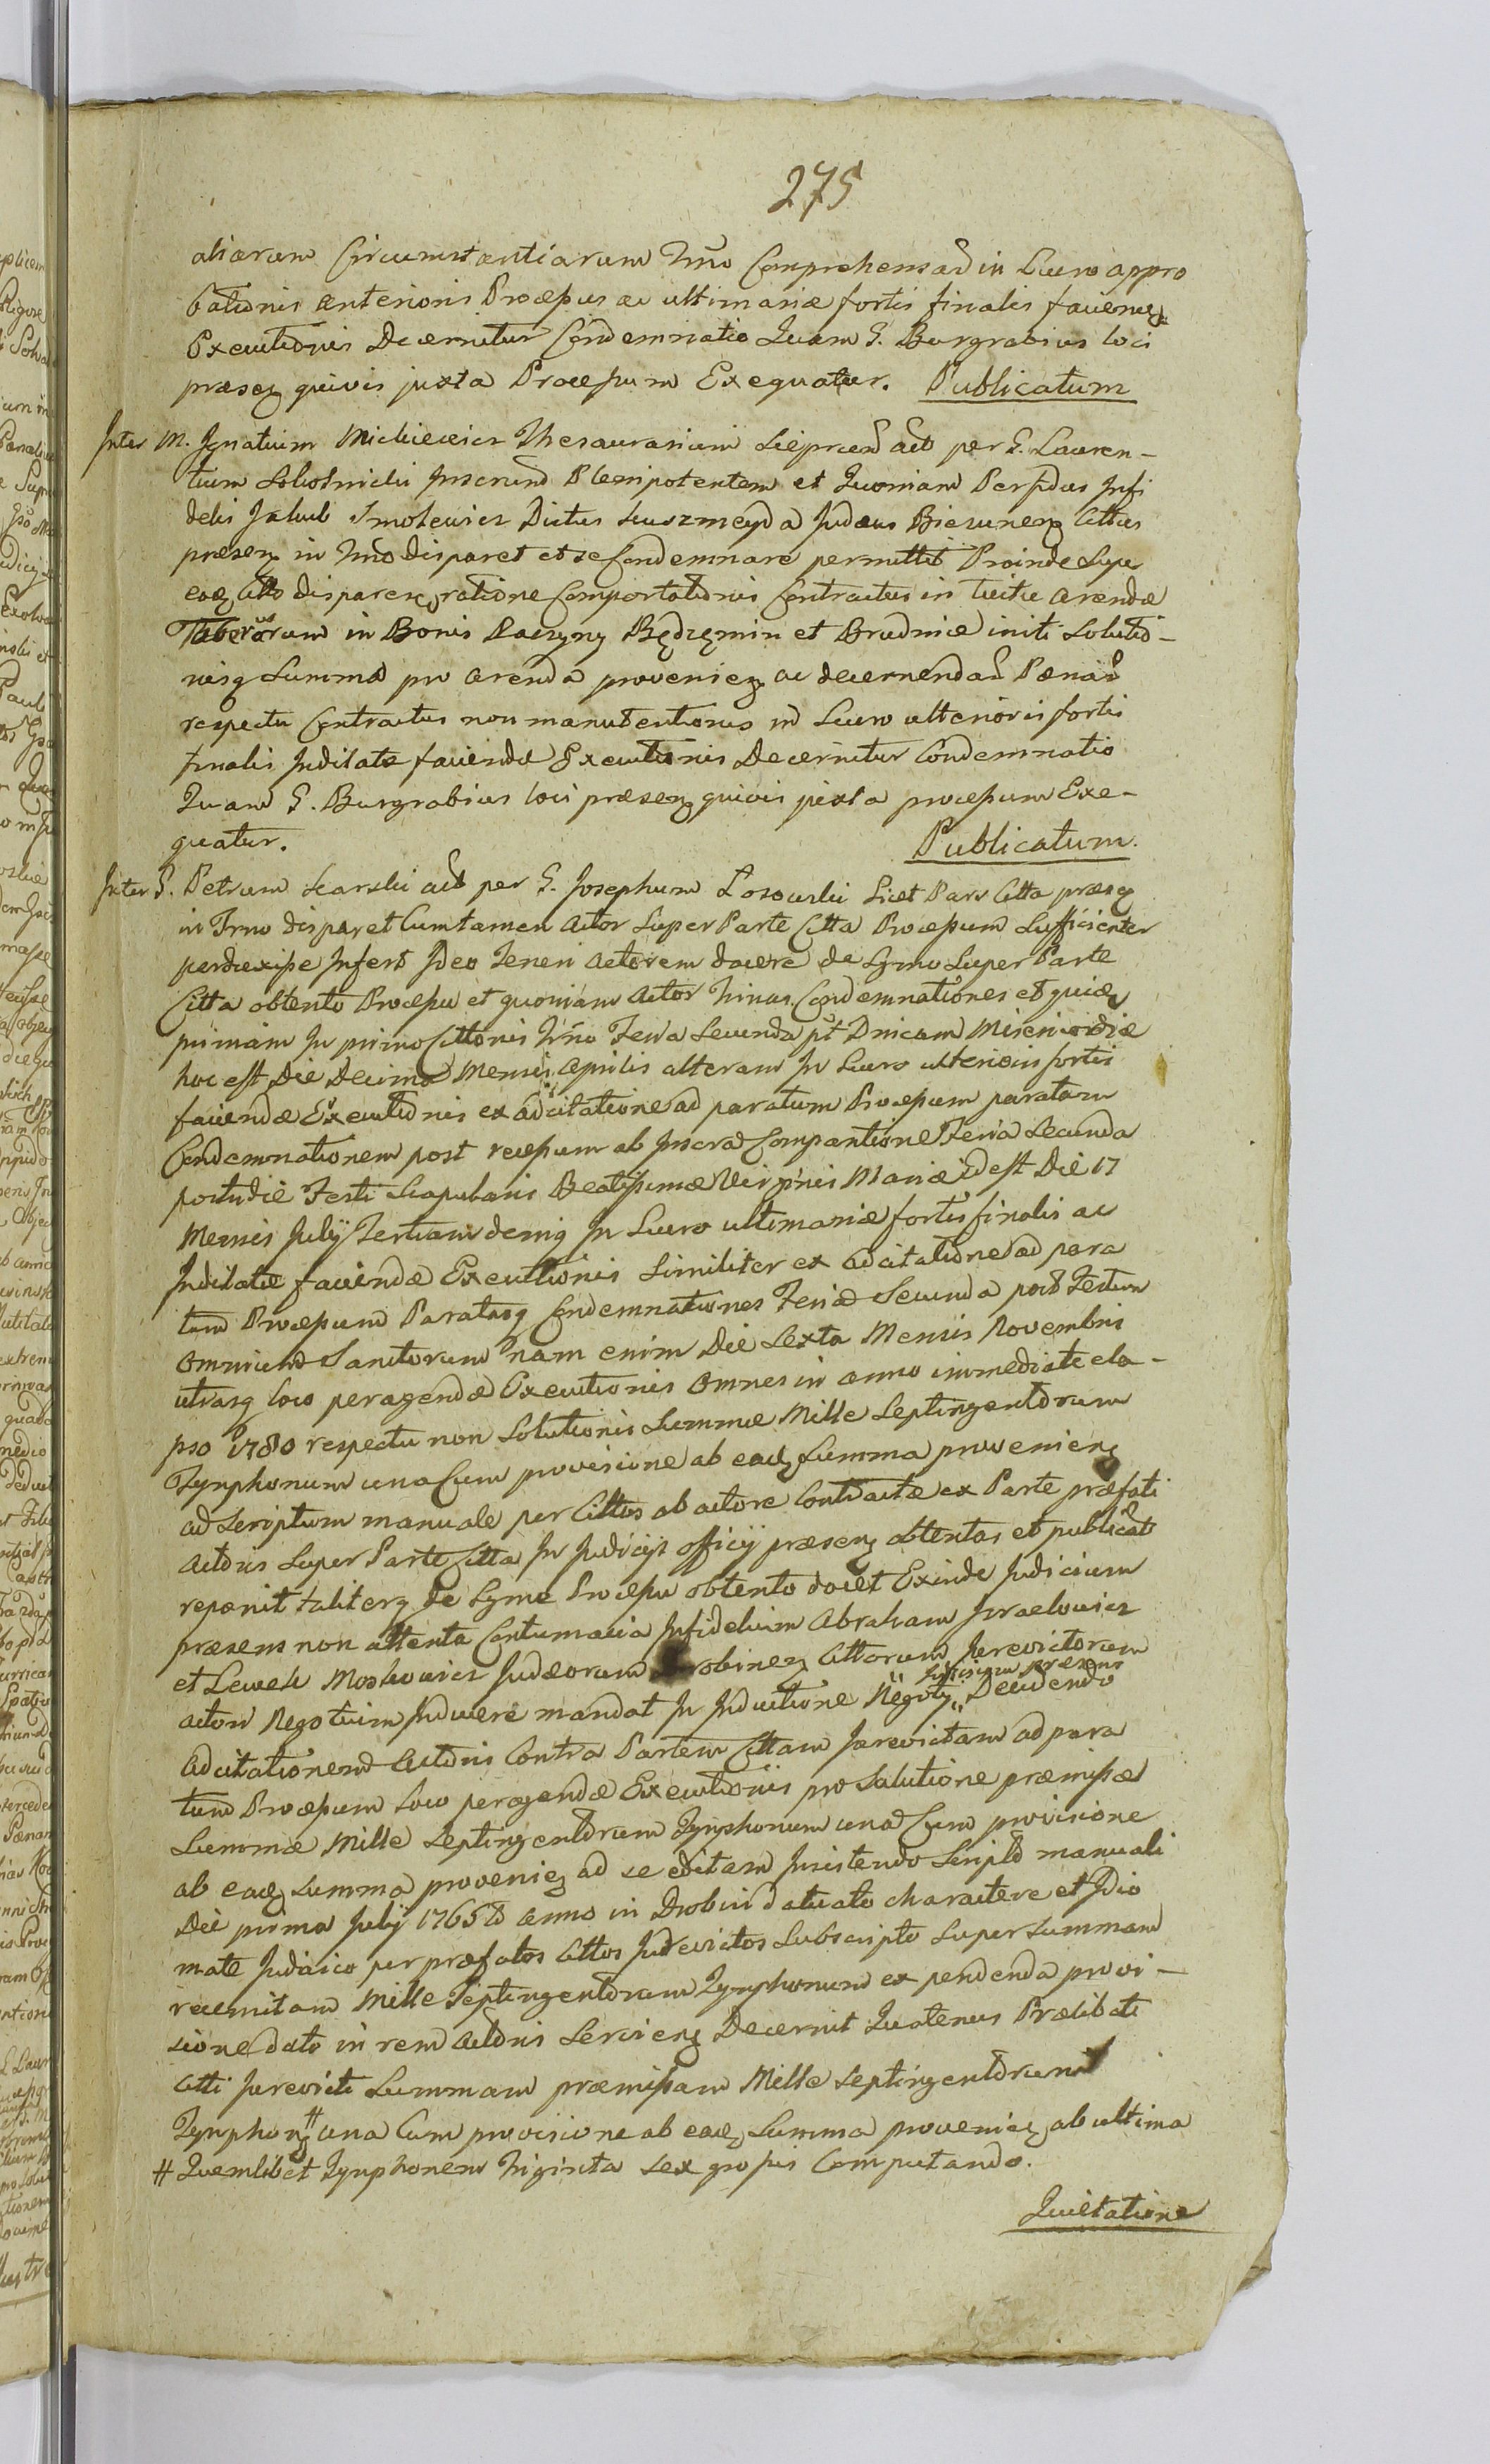 275
aliarum Circumstantiarum Trno Comprehensad in Lucro appro
bationis anterioris Processus ac ultimariæ fortis finalis faciend
Executionis Decernitur Condemnatio Quam G. Burgrabius loci
præseng quivis juxta Processum Exequatur. Publicatum
Inter M. Ignatium Mickiewicz Thesaurarium act per G. Lauren-
tium Plenipotentem et Quoniam Perfidus Infi
delis Jakub Smolewicz Dictus Judæus Biezuneng Cittus
præseng in Trno disparet et se Condemnare permittit Proinde Supe
eoq Citto dispareng ratione Comportationis Contractus in tuitu Arendæ
Tabernarum in Bonis Raczyny Będzymin et Brudnice initi Solutio-
nisq Summæ pro arenda provenieng ac decernendas Pænas
respectu Contractus non manutentionis in Lucro ulterioris fortis
finalis Inditatæ faciendæ Executionis Decernitur Condemnatio
Quam G. Burgrabius loci præseng quivis juxta processum Exe-
quatur. Publicatum.
Inter G. Petrum Skarski act per G. Josephum Łosowski Licet Pars Citta præseng
in Trno disparet Cum tamen Actor Super Parte Citta Processum Sufficienter
perduxisse Infert Ideo Teneri Actorem docere de Lgmo Super Parte
Citta obtento Processu et quoniam Actor trinas Condemnationes et quidem
primam in primo Cittonis Trno Feria Secunda pt Dnicam Misericordiæ
hoc est Die Decima Mensis Aprilis alteram in Lucro ulterioris fortis
faciendæ Executionis ex adcitatione ad paratum Processum paratam
Condemnationem post recessum ab Inscrad Comparitione Feria Secunda
postridie Festi Scapularis Beatissimæ Virginis Mariæ idest Die 17
Mensis Julij Tertiam demq In Lucro ultimariæ fortis finalis ac
Inditatæ faciendæ Executionis Similiter ex adcitatione ad para
tum Processum Paratasq Condemnationes Feria Secunda post Festum
Omnium Sanctorum nam enim Die Sexta Mensis Novembris
utrasq loco peragendæ Executionis Omnes in anno immediate ela-
pso 1780 respectu non Solutionis Summæ Mille Septingentorum
Tynphonum una Cum provisione ab eadq Summa provenieng
ad Scriptum manuale per Cittos ab actore Contractæ ex Parte præfati
Actoris Super Parte Citta In Judicijs officij præseng obtentas et publicat
reponit taliterq de Lgme Processu obtento docet Exinde Judicium
præsens non attenta Contumacia Infidelium Abraham Jzraelowicz
et Lewek Moskowicz Judæorum Drobineng Cittorum Jurevictorum
Judicium præsens
actori Negotium Inducere mandat In Inductione Negotij Decidendo
Adcitationem Actoris Contra Partem Cittam Jurevictam ad para
tum Processum loco peragendæ Executionis pro Salutione præmissæ
Summæ Mille Septingentorum Tynphonum una Cum provisione
ab eadq Summa provenieng ad se editam Insistendo Scripto manuali
Die prima Julij 1765to anno in Drobin datuato charactere et Idio
mate Judaico per præfatos Cittos Jurevictos Subscripto Super Summam
recensitam Mille Septingentorum Tynphonum ex pendenda provi-
sione dato in rem Actoris Servieng Decernit Quatenus Prælibati
Citti Jurevicti Summam præmissam Mille Septingentorum
Tynphong # una Cum provisione ab eadq Summa provenieng ab ultima
# Quemlibet Tynphonem Triginta Sex grossis Computando.
Quietatione